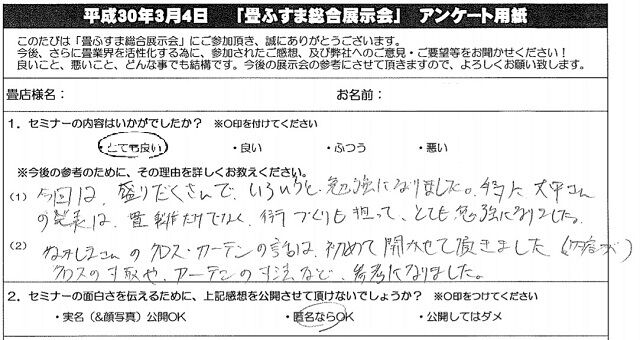 平成30年3月4日 「畳ふすま総合展示会」 アンケート用紙
このたびは「畳ふすま総合展示会」にご参加頂き、誠にありがとうございます。
今後、さらに畳業界を活性化する為に、参加されたご感想、及び弊社へのご意見・ご要望等をお聞かせください！
良いこと、悪いこと、どんな事でも結構です。今後の展示会の参考にさせて頂きますので、よろしくお願い致します。
畳店様名： お名前：
1．セミナーの内容はいかがでしたか？ ※○印を付けてください
・とても良い ・良い ・ふつう ・悪い
※今後の参考のために、その理由を詳しくお教えください。
(1) 今回は、盛りだくさんで、いろいろと勉強になりました。特に さん
の発表は、畳 だけでなく、街づくりも担って、とても勉強になりました。
(2) さんのクロス・カーテンの話は、初めて聞かせて頂きました（内容が）
クロスの や、カーテンの寸法など、参考になりました。
2．セミナーの面白さを伝えるために、上記感想を公開させて頂けないでしょうか？ ※○印をつけてください
・実名（&顔写真）公開OK ・匿名ならOK ・公開してはダメ